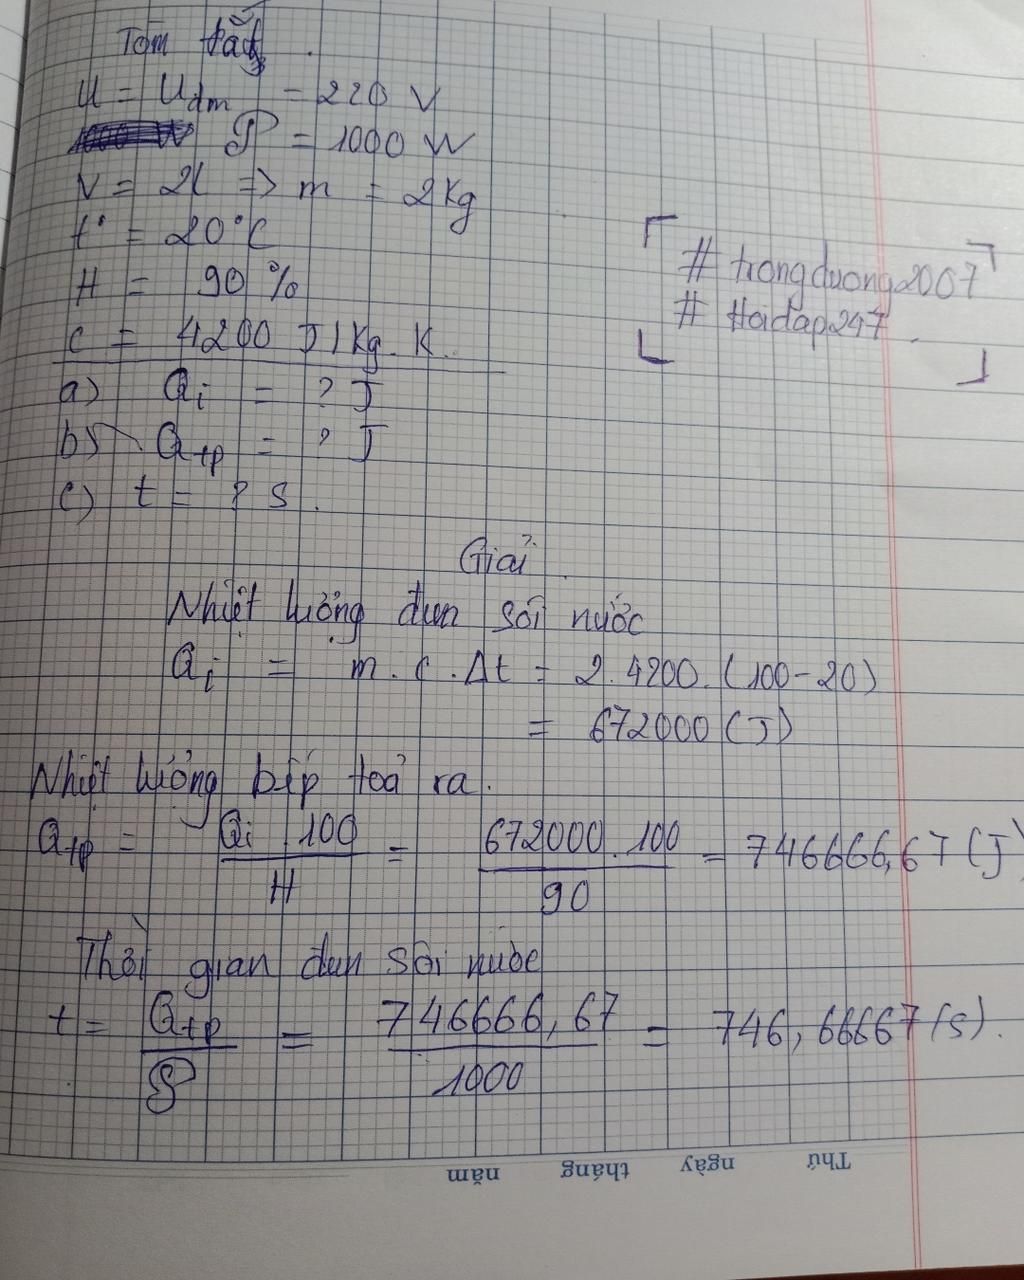 Tóm tắt.
U = Udm = 220 V
1000 W P = 1000 W
V = 2l => m = 2Kg
t° = 20°C
H = 90 %
c = 4200 J/Kg.K.
# trongduong2007
# Hoidap247.
a) Qi = ? J
b) Qtp = ? J
c) t = ? s.
Giải.
Nhiệt lượng đun sôi nước
Qi = m.c.Δt = 2.4200.(100-20)
= 672000 (J)
Nhiệt lượng bếp toả ra.
Qtp = Qi.100 / H = 672000.100 / 90 = 746666,67 (J)
Thời gian đun sôi nước
t = Qtp / P = 746666,67 / 1000 = 746,66667 (s).
Thứ ngày tháng năm